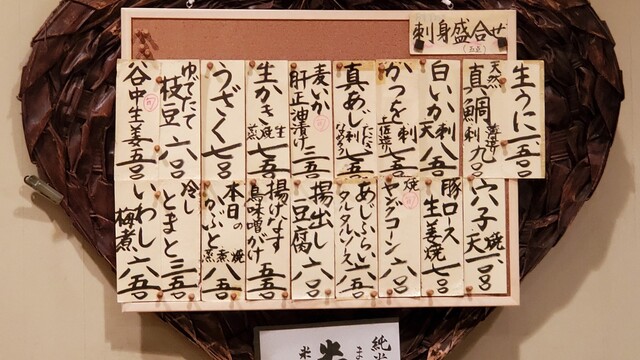 刺身盛合せ
生うに 一、五〇〇
天然 真鯛 薄造り 刺 九〇〇
白いか 刺 天 八五〇
かつを 刺 土佐造り 七五〇
真あじ たたき 刺 なめろう 七五〇
麦いか 肝正油漬け 三五〇
生かき 生 焼 蒸 七五〇
うざく 七〇〇
ゆでたて 枝豆 六〇〇
谷中生姜 五〇〇
穴子 焼 天 一、〇〇〇
豚ロース 生姜焼 七〇〇
焼 ヤングコーン 六〇〇
あじふらい タルタルソース 六五〇
揚出し豆腐 六〇〇
揚げなす 鳥味噌がけ 五五〇
本日のかぶと 焼 煮 蒸 八五〇
冷しとまと 三五〇
いわし梅煮 六五〇
純米
米